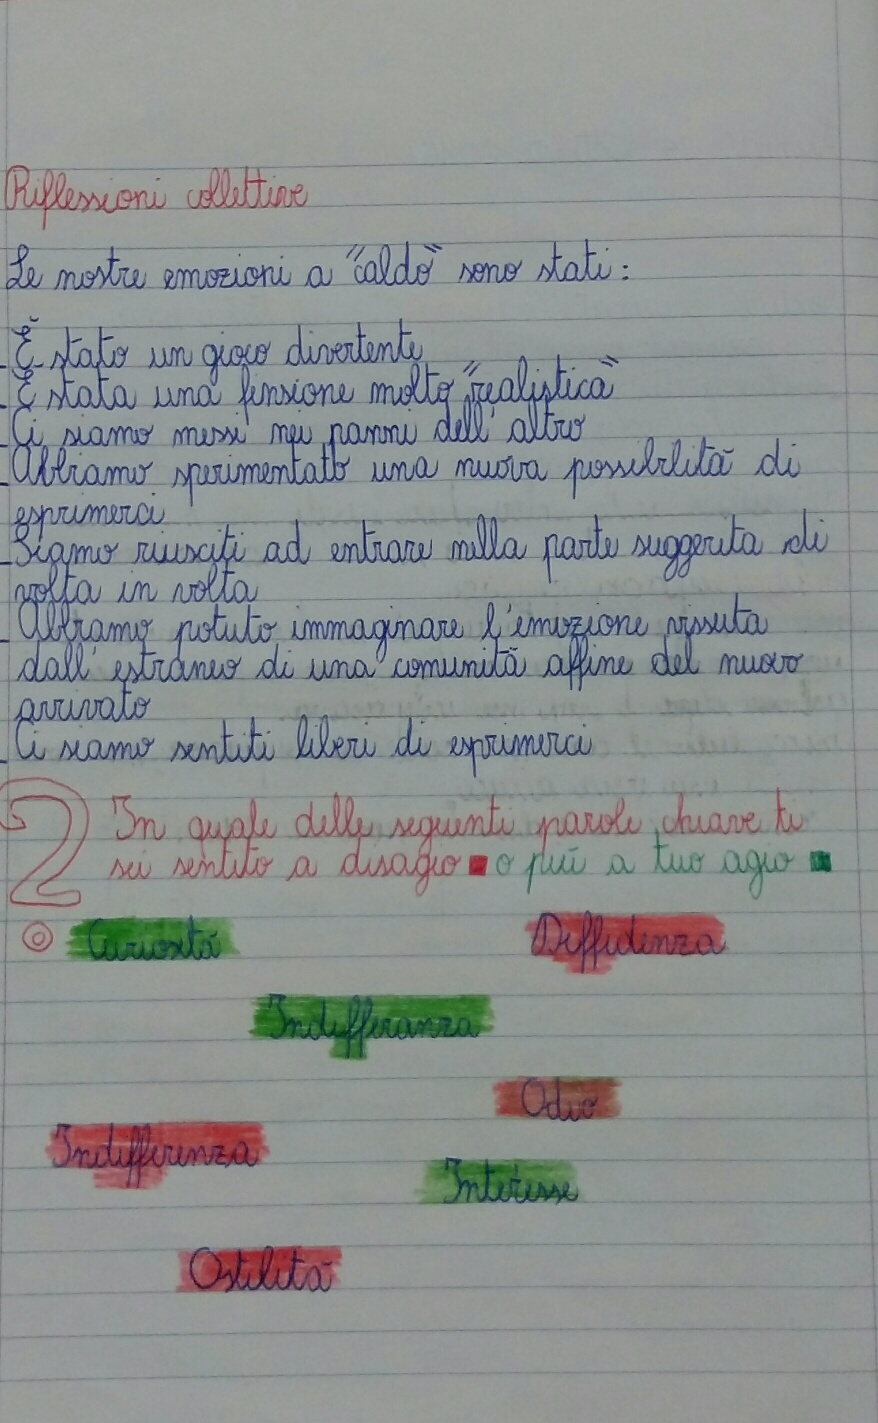 Riflessioni collettive
Le nostre emozioni a "caldo" sono stati:
- È stato un gioco divertente
- È stata una finsione molto "realistica"
- Ci siamo messi nei panni dell'altro
- Abbiamo sperimentato una nuova possibilità di
esprimerci
- Siamo riusciti ad entrare nella parte suggerita di
volta in volta
- Abbiamo potuto immaginare l'emozione vissuta
dall'estraneo di una comunità affine del nuovo
arrivato
- Ci siamo sentiti liberi di esprimerci
2 In quale delle seguenti parole chiave ti
sei sentito a disagio o più a tuo agio
Curiosità Diffidenza
Indifferanza
Odio
Indifferenza
Interesse
Ostilità